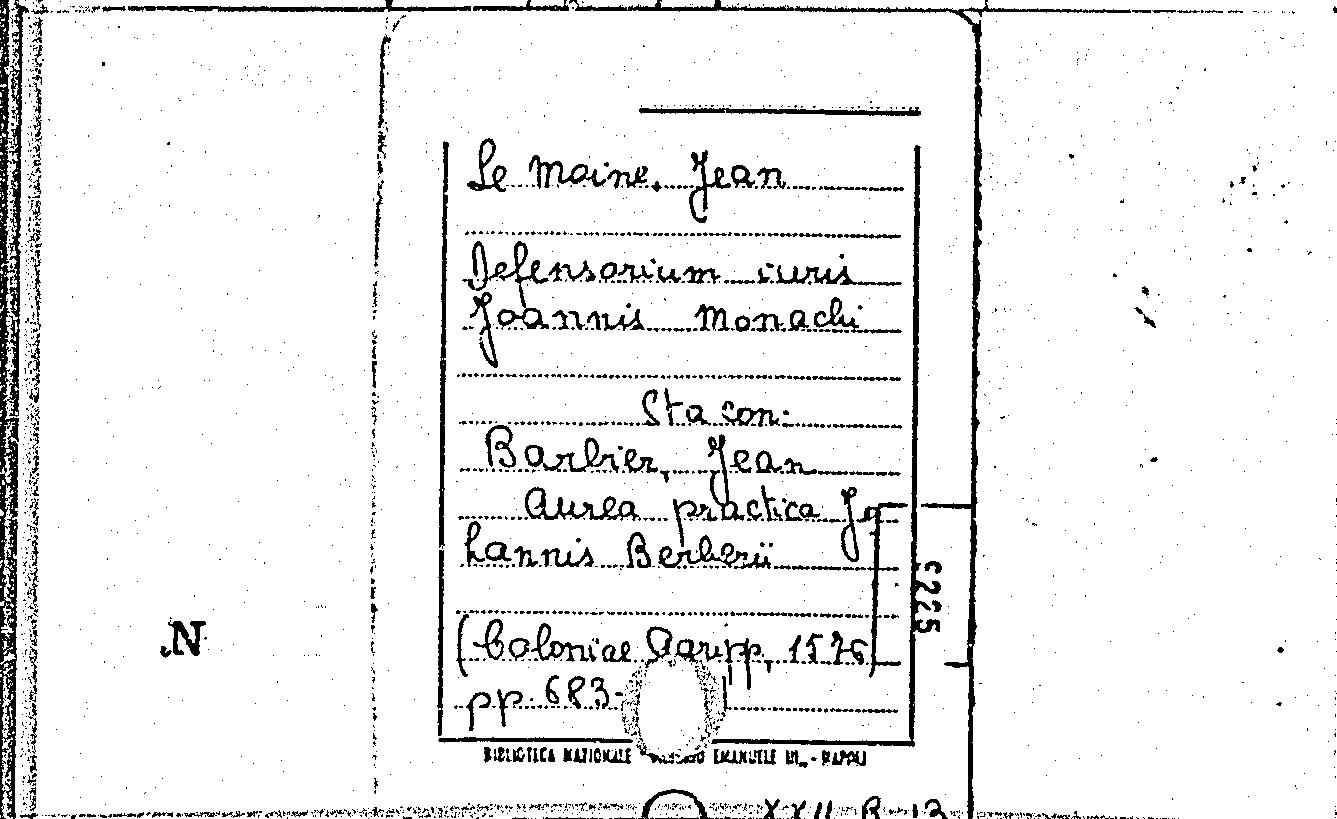 Le Moine, Jean
Defensorium iuris
Joannis Monachi
Sta con:
Barbier, Jean
Aurea practica Jo
hannis Berberii
(Coloniae Agripp, 1576)
pp. 683-
BIBLIOTECA NAZIONALE EMANUELE III - NAPOLI
5225
N.
XXII B 13